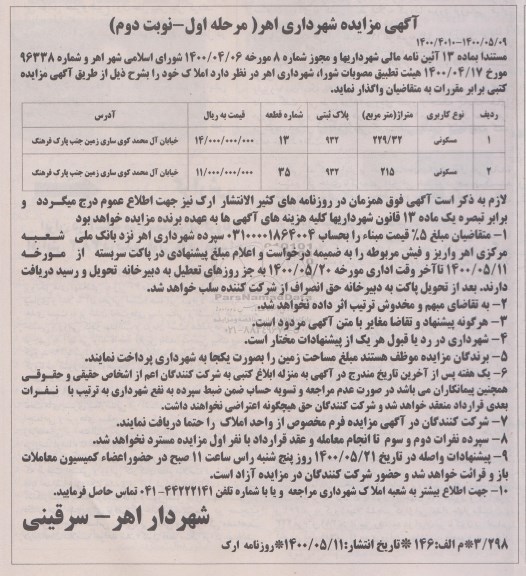 آگهی مزایده شهرداری اهر( مرحله اول-نوبت دوم)
۱۴۰۰/۴۰۱۰-۱۴۰۰/۰۵/۰۹
مستندا بماده ۱۳ آئین نامه مالی شهرداریها و مجوز شماره ۸ مورخه ۱۴۰۰/۰۴/۰۶ شورای اسلامی شهر اهر و شماره ۹۶۳۳۸
مورخ ۱۴۰۰/۰۴/۱۷ هیئت تطبیق مصوبات شورا، شهرداری اهر در نظر دارد املاک خود را بشرح ذیل از طریق آگهی مزایده
کتبی برابر مقررات به متقاضیان واگذار نماید.
ردیف نوع کاربری متراژ(متر مربع) پلاک ثبتی شماره قطعه قیمت به ریال آدرس
۱ مسکونی ۲۲۹/۳۲ ۹۳۲ ۱۳ ۱۴/۰۰۰/۰۰۰/۰۰۰ خیابان آل محمد کوی ساری زمین جنب پارک فرهنگ
۲ مسکونی ۲۱۵ ۹۳۲ ۳۵ ۱۱/۰۰۰/۰۰۰/۰۰۰ خیابان آل محمد کوی ساری زمین جنب پارک فرهنگ
لازم به ذکر است آگهی فوق همزمان در روزنامه های کثیر الانتشار ارک نیز جهت اطلاع عموم درج میگردد و
برابر تبصره یک ماده ۱۳ قانون شهرداریها کلیه هزینه های آگهی ها به عهده برنده مزایده خواهد بود
۱- متقاضیان مبلغ ۵٪ قیمت مبناء را بحساب ۰۳۱۰۰۰۰۱۸۶۴۰۰۴ سپرده شهرداری اهر نزد بانک ملی شعبه
مرکزی اهر واریز و فیش مربوطه را به ضمیمه درخواست و اعلام مبلغ پیشنهادی در پاکت سربسته از مورخه
۱۴۰۰/۰۵/۱۱ تاآخر وقت اداری مورخه ۱۴۰۰/۰۵/۲۰ به جز روزهای تعطیل به دبیرخانه تحویل و رسید دریافت
دارند. بعد از تحویل پاکت به دبیرخانه حق انصراف از شرکت کننده سلب خواهد شد.
۲- به تقاضای مبهم و مخدوش ترتیب اثر داده نخواهد شد.
۳- هرگونه پیشنهاد و تقاضا مغایر با متن آگهی مردود است.
۴- شهرداری در رد یا قبول هر یک از پیشنهادات مختار است.
۵- برندگان مزایده موظف هستند مبلغ مساحت زمین را بصورت یکجا به شهرداری پرداخت نمایند.
۶- یک هفته پس از آخرین تاریخ مندرج در آگهی به منزله ابلاغ کتبی به شرکت کنندگان اعم از اشخاص حقیقی و حقوقی
همچنین پیمانکاران می باشد در صورت عدم مراجعه و تسویه حساب ضمن ضبط سپرده به نفع شهرداری به ترتیب با نفرات
بعدی قرارداد منعقد خواهد شد و شرکت کنندگان حق هیچگونه اعتراضی نخواهند داشت.
۷- شرکت کنندگان در آگهی مزایده فرم مخصوص از واحد املاک را حتما دریافت نمایند.
۸- سپرده نفرات دوم و سوم تا انجام معامله و عقد قرارداد با نفر اول مزایده مسترد نخواهد شد.
۹- پیشنهادات واصله در تاریخ ۱۴۰۰/۰۵/۲۱ روز پنج شنبه راس ساعت ۱۱ صبح در حضوراعضاء کمیسیون معاملات
باز و قرائت خواهد شد و حضور شرکت کنندگان در مزایده آزاد است.
۱۰- جهت اطلاع بیشتر به شعبه املاک شهرداری مراجعه و یا با شماره تلفن ۴۴۲۲۲۱۴۱-۰۴۱ تماس حاصل فرمایید.
شهردار اهر- سرقینی
۳/۲۹۸*م الف:۱۴۶*تاریخ انتشار:۱۴۰۰/۰۵/۱۱*روزنامه ارک